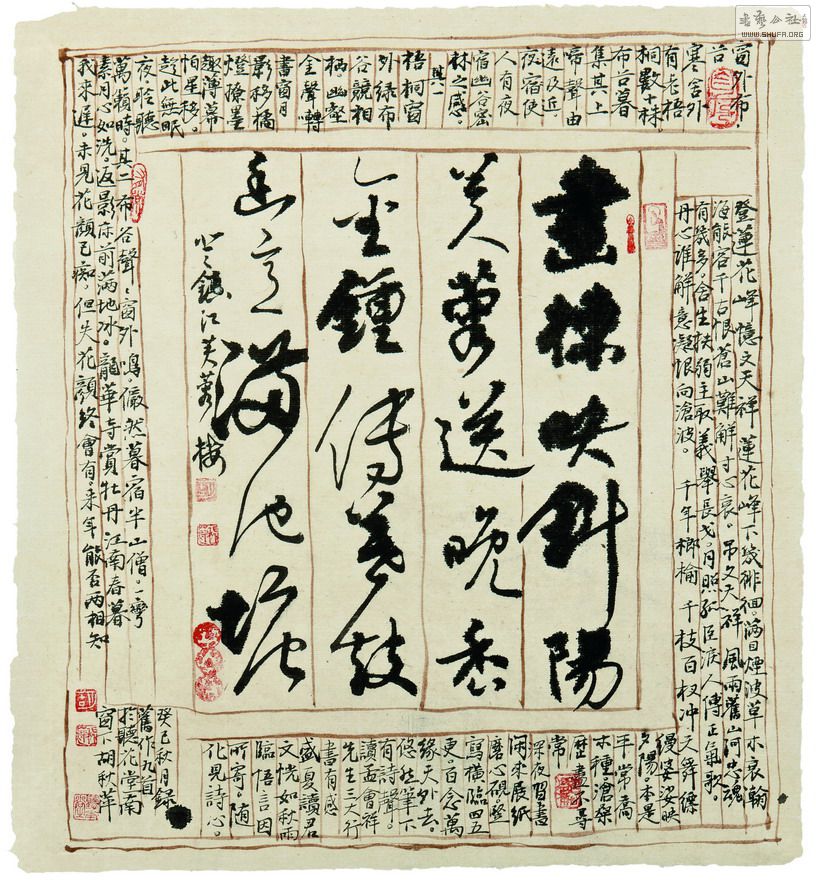 畫棟映斜陽
芙蓉送晚香
金鍾傳暮鼓
意滿池塘
登鎮江芙蓉樓
窗外布
谷
寒舍外
有老梧
桐數十株，
布谷暮
集其上
啼聲由
遠及近，
夜宿使
人有夜
宿幽谷密
林之感。
其一
梧桐窗
外绿布
谷競相
栖。幽壑
金聲囀
書窗月
影移。橘
燈撩書
趣薄幕
怕星移。
趁此無眠
夜，聆聽
萬籟時。其二 布谷聲聲窗外鳴，儼然暮宿半山僧。一彎
素月心如洗，返影床前滿地冰。龍華寺賞牡丹 江南春暮
我來遲。未見花顏已痴。但失花顏終會有。来年能否兩相知
登蓮花峰憶文天祥 蓮花峰下幾徘徊，滿目煙波草木哀。翰
海般容千古恨，蒼山難解寸心哀。吊文天祥 風雨舊山河，忠魂
有幾多。舍生扶弱主，取義舉長戈。月照孤臣淚，人傳正氣歌。
丹心誰解意，凝恨向滄波。 千年榔榆 千枝百杈冲天舞，縹
缦婆娑映
夕陽本是
平常喬
木種滄桑
歷盡不尋
常
深夜習書
閑來展紙
磨心硯
寫橫臨四五
更。百念萬
緣天外去。
悠然筆下
有詩聲。
讀孟會祥
先生三大行
書有感
盛夏讀君
文恍如秋雨
臨悟言因
所寄。隨
化見詩心。
癸巳秋月錄
舊作九首
於聽花堂南
窗下胡秋萍
書藝公社
WWW.SHUFA.ORG